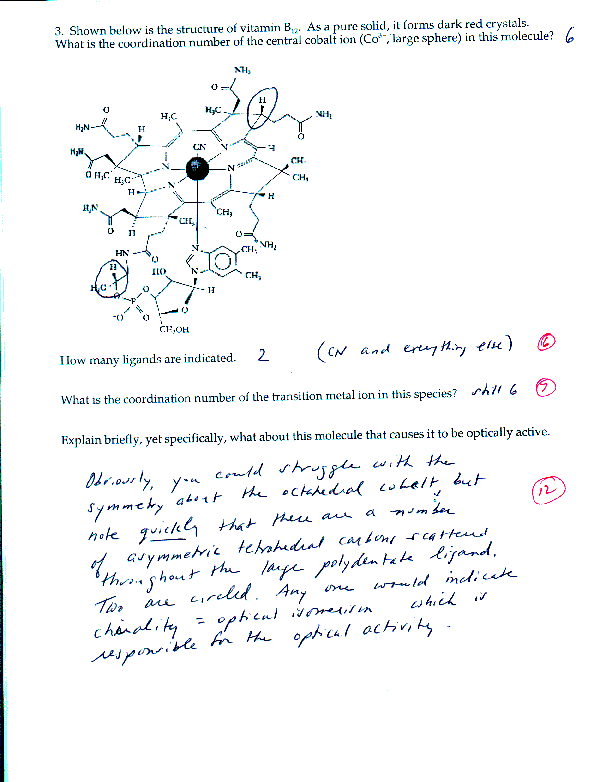 3. Shown below is the structure of vitamin B12. As a pure solid, it forms dark red crystals.
What is the coordination number of the central cobalt ion (Co3+, large sphere) in this molecule? 6
NH2
O
H3C
H3C
H
NH2
O
O
H2N
H
CN
N
H
H2N
O
H3C
H3C
N
N
CH3
CH3
H
N
H
H2N
O
H
CH3
CH3
O
NH2
HN
O
N
CH3
H
HO
N
CH3
H3C
O
O
P
H
-O
O
O
CH2OH
How many ligands are indicated. 2 (CN and everything else) 6
What is the coordination number of the transition metal ion in this species? still 6 5
Explain briefly, yet specifically, what about this molecule that causes it to be optically active.
Obviously, you could struggle with the
symmetry about the octahedral cobalt, but
note quickly that there are a number
of asymmetric tetrahedral carbons scattered
throughout the large polydentate ligand.
Two are circled. Any one would indicate
chirality = optical isomerism which is
responsible for the optical activity.
12